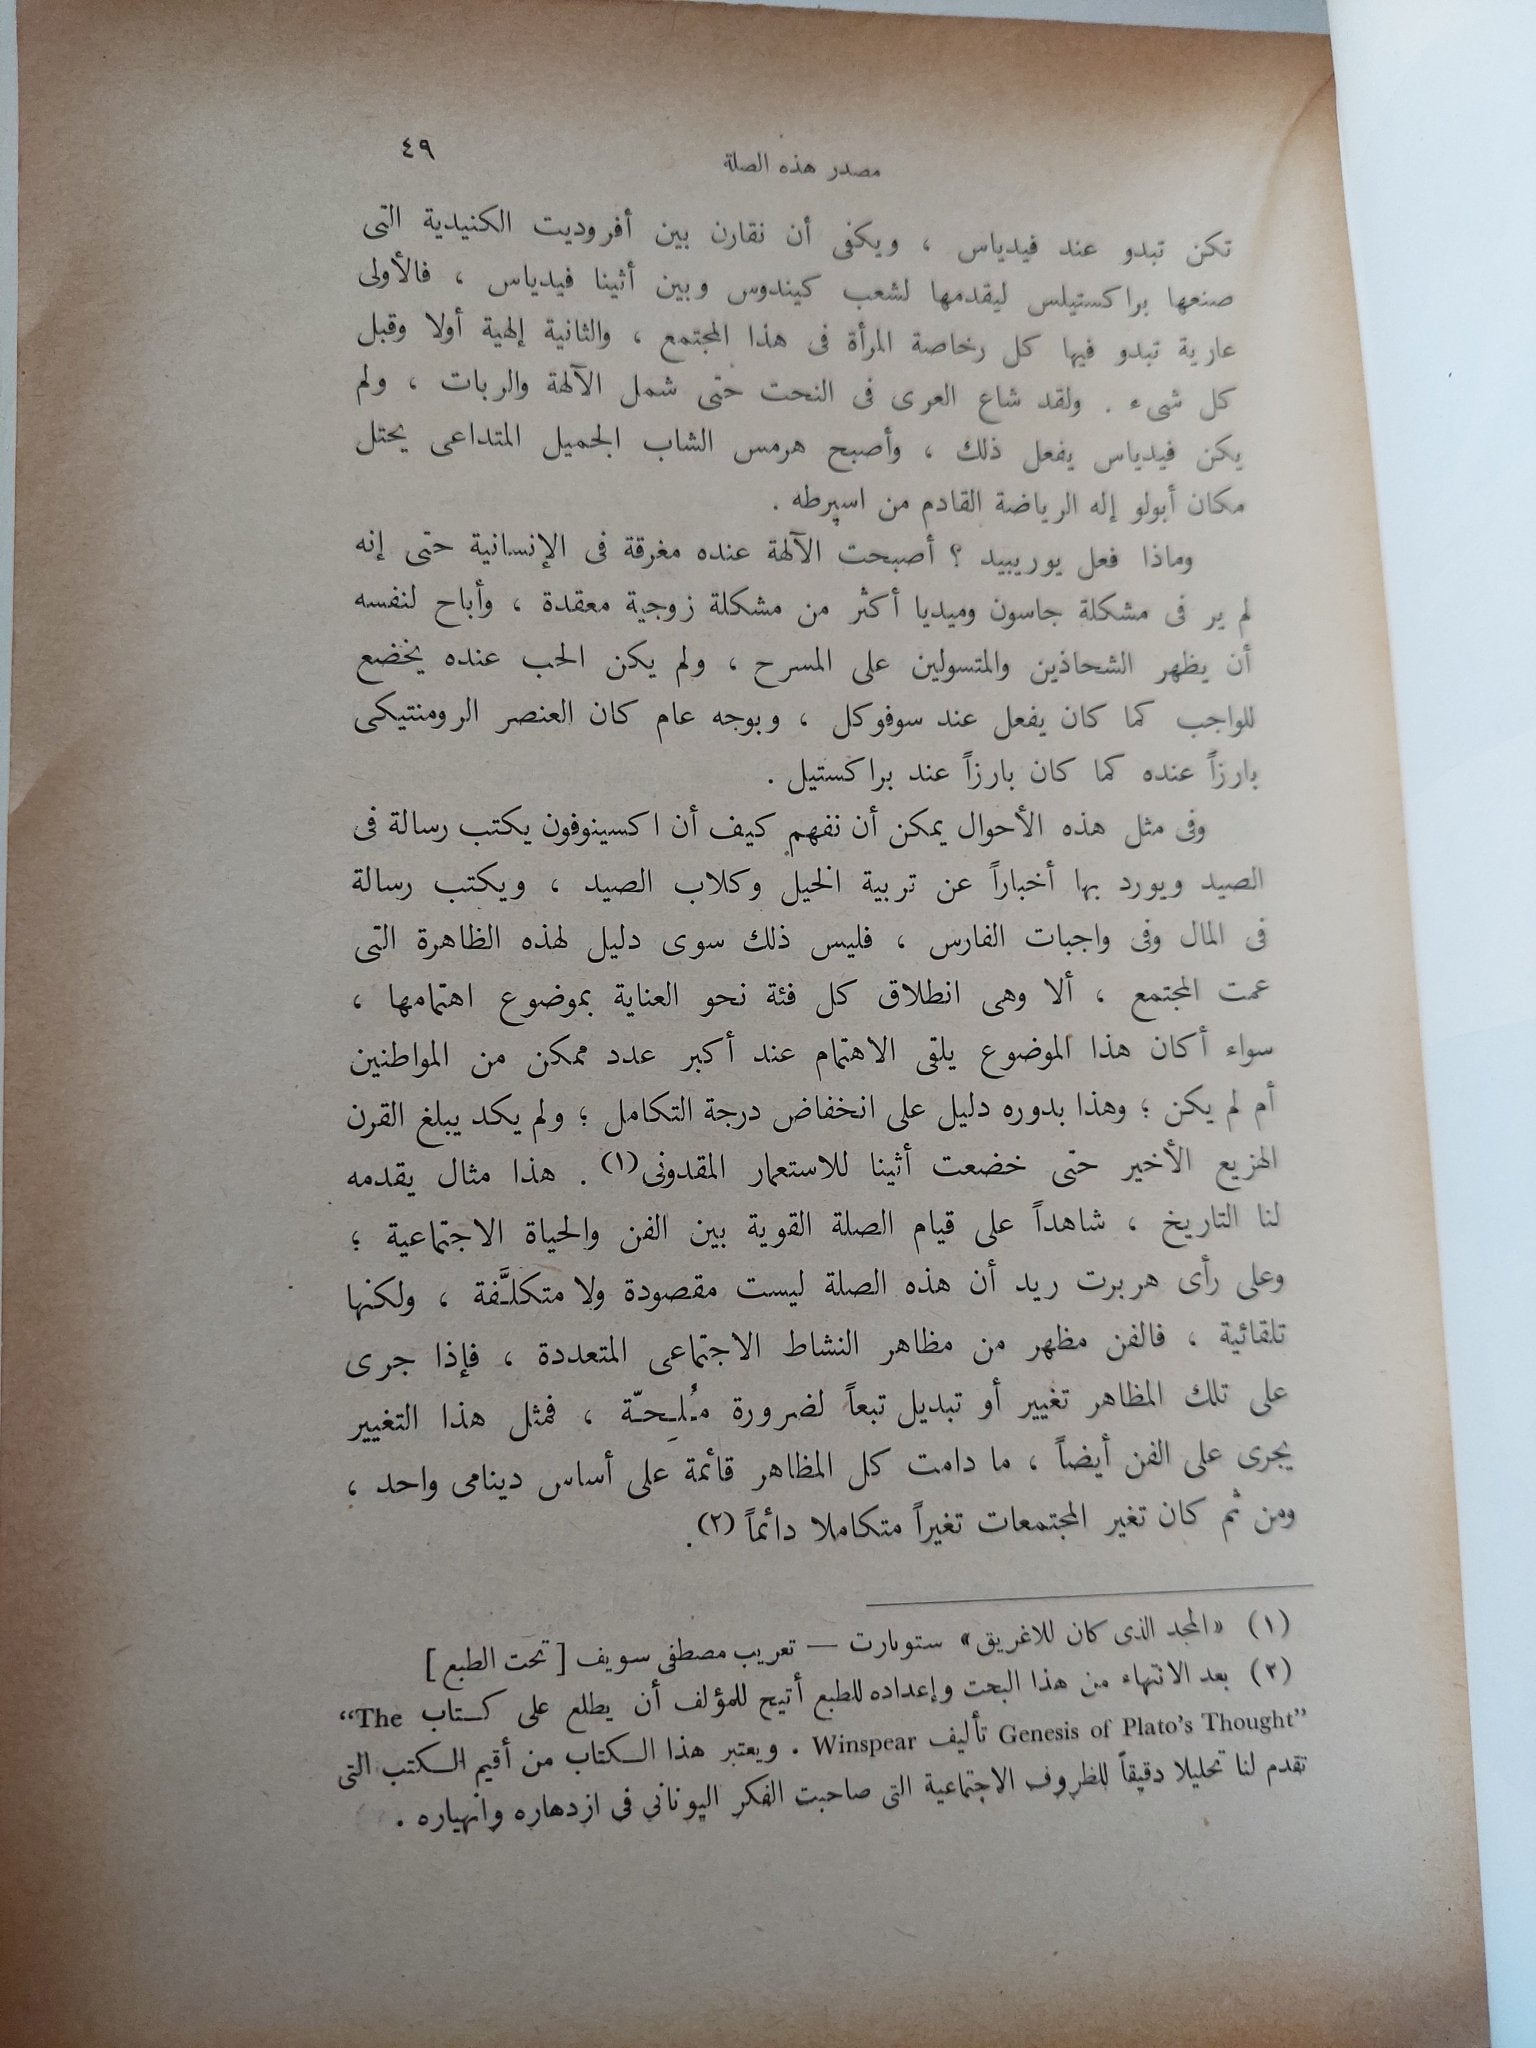 مصدر هذه الصلة
٤٩
تكن تبدو عند فيدياس ، ويكفى أن نقارن بين أفروديت الكنيدية التى
صنعها براكستيلس ليقدمها لشعب كيندوس وبين أثينا فيدياس ، فالأولى
عارية تبدو فيها كل رخاصة المرأة فى هذا المجتمع ، والثانية إلهية أولا وقبل
كل شىء . ولقد شاع العرى فى النحت حتى شمل الآلهة والربات ، ولم
يكن فيدياس يفعل ذلك ، وأصبح هرمس الشاب الجميل المتداعى يحتل
مكان أبولو إله الرياضة القادم من اسپرطه .
وماذا فعل يوريبيد ؟ أصبحت الآلهة عنده مغرقة فى الإنسانية حتى إنه
لم ير فى مشكلة جاسون وميديا أكثر من مشكلة زوجية معقدة ، وأباح لنفسه
أن يظهر الشحاذين والمتسولين على المسرح ، ولم يكن الحب عنده يخضع
للواجب كما كان يفعل عند سوفوكل ، وبوجه عام كان العنصر الرومنتيكى
بارزاً عنده كما كان بارزاً عند براكستيل .
وفى مثل هذه الأحوال يمكن أن نفهم كيف أن اكسينوفون يكتب رسالة فى
الصيد ويورد بها أخباراً عن تربية الخيل وكلاب الصيد ، ويكتب رسالة
فى المال وفى واجبات الفارس ، فليس ذلك سوى دليل لهذه الظاهرة التى
عمت المجتمع ، ألا وهى انطلاق كل فئة نحو العناية بموضوع اهتمامها ،
سواء أكان هذا الموضوع يلقى الاهتمام عند أكبر عدد ممكن من المواطنين
أم لم يكن ؛ وهذا بدوره دليل على انخفاض درجة التكامل ؛ ولم يكد يبلغ القرن
الهزيع الأخير حتى خضعت أثينا للاستعمار المقدونى(١) . هذا مثال يقدمه
لنا التاريخ ، شاهداً على قيام الصلة القوية بين الفن والحياة الاجتماعية ؛
وعلى رأى هربرت ريد أن هذه الصلة ليست مقصودة ولا متكلَّفة ، ولكنها
تلقائية ، فالفن مظهر من مظاهر النشاط الاجتماعى المتعددة ، فإذا جرى
على تلك المظاهر تغيير أو تبديل تبعاً لضرورة مُلِحّة ، فمثل هذا التغيير
يجرى على الفن أيضاً ، ما دامت كل المظاهر قائمة على أساس دينامى واحد ،
ومن ثم كان تغير المجتمعات تغيراً متكاملا دائماً (٢).
(١) «المجد الذى كان للاغريق» ستوبارت — تعريب مصطفى سويف [تحت الطبع]
(٢) بعد الانتهاء من هذا البحث وإعداده للطبع أتيح للمؤلف أن يطلع على كتاب “The
Genesis of Plato’s Thought” تأليف Winspear . ويعتبر هذا الكتاب من أقيم الكتب التى
تقدم لنا تحليلا دقيقاً للظروف الاجتماعية التى صاحبت الفكر اليونانى فى ازدهاره وانهياره .